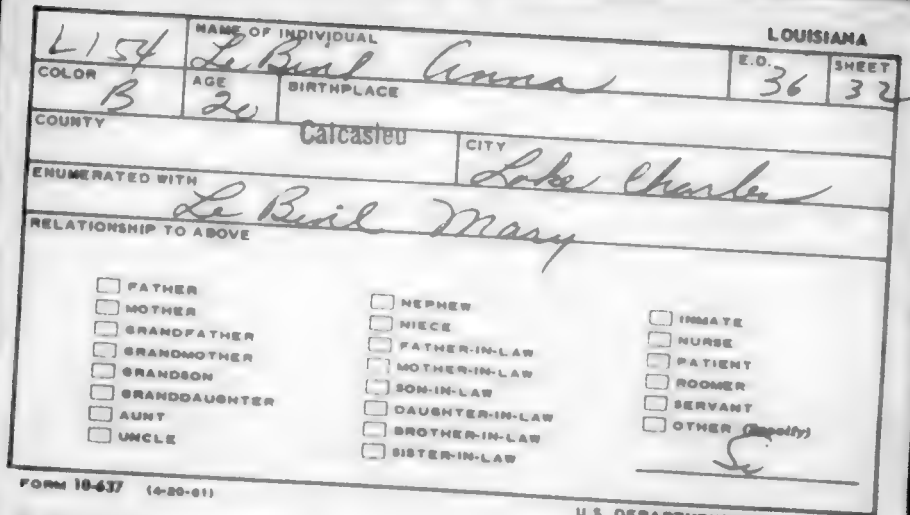 LOUISIANA
L154 NAME OF INDIVIDUAL Le Bivil Anna E.D. 36 SHEET 32
COLOR B AGE 20 BIRTHPLACE
COUNTY Calcasieu CITY Lake Charles
ENUMERATED WITH Le Bivil Mary
RELATIONSHIP TO ABOVE
FATHER
MOTHER
GRANDFATHER
GRANDMOTHER
GRANDSON
GRANDDAUGHTER
AUNT
UNCLE
NEPHEW
NIECE
FATHER-IN-LAW
MOTHER-IN-LAW
SON-IN-LAW
DAUGHTER-IN-LAW
BROTHER-IN-LAW
SISTER-IN-LAW
INMATE
NURSE
PATIENT
ROOMER
SERVANT
OTHER (Specify)
FORM 10-637 (4-20-61)
U.S.